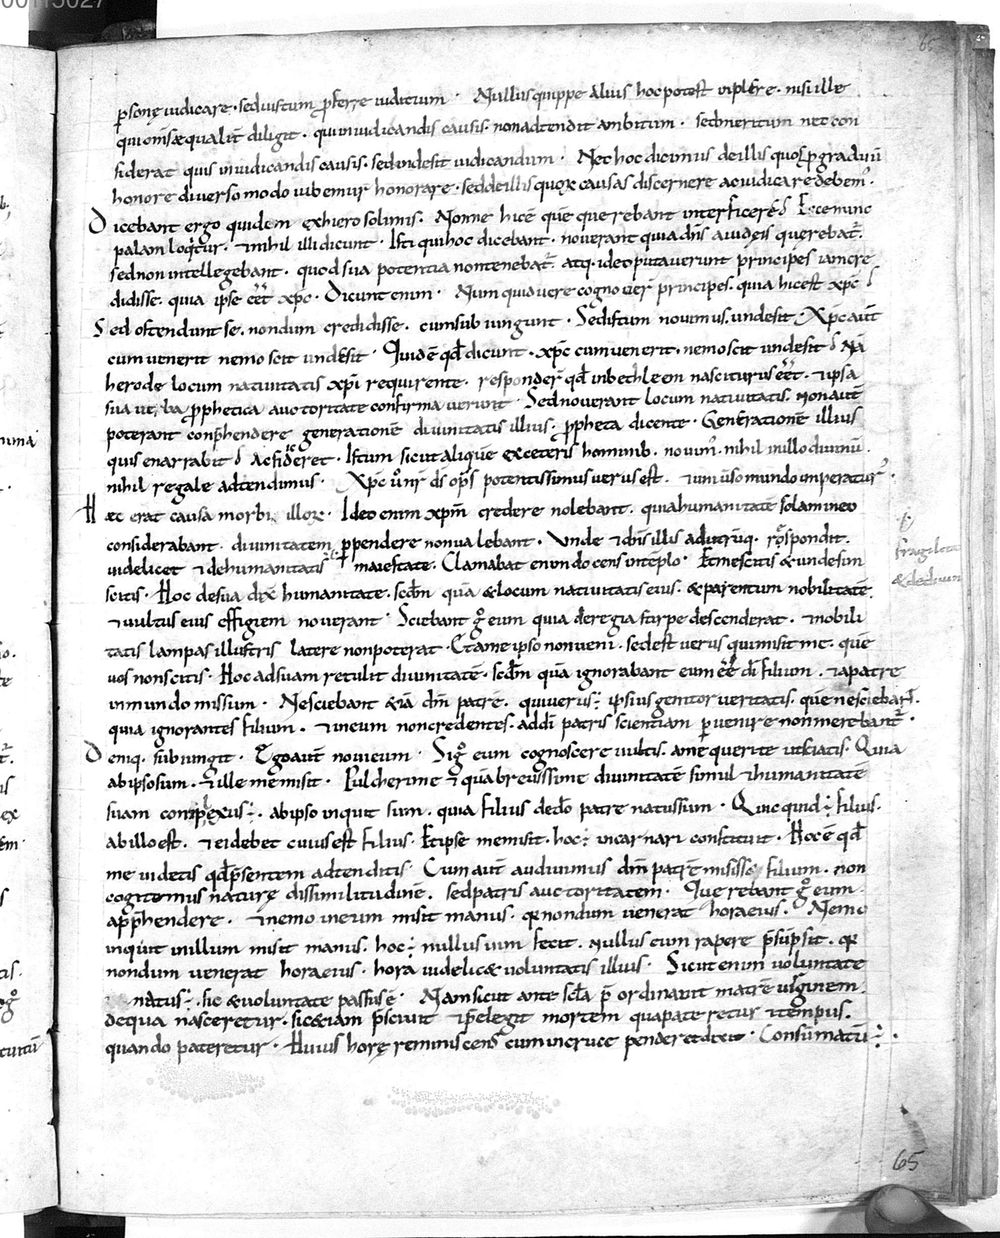 65
p̱sonę iudicare. sed iustum p̱ferre iudicium. Nullus quippe alius hoc potest implere. nisi ille
qui om̄s æqualit̄ diligit. qui in iudicandis causis. non adtendit ambitum. sed meritum nec con
siderat quis in iudicandis causis. sed unde sit iudicandum. Nec hoc dicimus de illis quos p̱ graduū
honore diverso modo iubemur honorare. sed de illis quoꝝ causas discernere ac iudicare debem̉.
Dicebant ergo quidam ex hierosolimis. Nonne hic ē quē querebant interficere? Ecce nunc
palam loq̇tur. ⁊ nihil illi dicunt. Isti qui hoc dicebant. noverant quia dn̄s a iudęis querebat̄.
sed non intellegebant. quod sua potentia non tenebat̄. atq. ideo putaverunt principes iam cre
didisse. quia ipse eēt xp̄c. Dicunt enim. Numquid vere cognover̄ principes. quia hic est xp̄c?
Sed ostendunt se. nondum credidisse. cum subiungunt. Sed istum novimus. unde sit. Xp̄c aut̄
cum venerit nemo scit unde sit. Quid ē qd̄ dicunt. xp̄c cum venerit. nemo scit unde sit? Nā
herode locum nativitatis xp̄i requirente. responder̄ qd̄ in bethleem nasciturus eēt. ⁊ ipsa
sua verba p̱phetica auctoritate confirmaverunt. Sed noverant locum nativitatis. non aut̄
poterant conp̄hendere generationē divinitatis illius. p̱pheta dicente. Generationē illius
quis enarrabit? Ac si diceret. Istum sicut aliquē ex ceteris hominib. novim̉. nihil in illo divinū.
nihil regale adtendimus. Xp̄c ū nr̄ ds̄ op̄s potentissimus verus est. ⁊ universo mundo imperatur̉.
Hæc erat causa morbi illoꝝ. Ideo enim xp̄m credere nolebant. quia humanitatē solam in eo
considerabant. divinitatem p̱pendere non valebant. Unde ⁊ dn̄s illis ad utrūq. respondit.
videlicet ⁊ de humanitatis maiestate. Clamabat enim docens in tēplo. Et me scitis & unde sim
scitis. Hoc de sua dix̄ humanitate. scdm̄ quā & locum nativitatis eius. & parentum nobilitatē.
⁊ vultus eius effigiem noverant. Sciebant gͦ eum quia de regia stirpe descenderat. ⁊ nobili
tatis lampas illustris latere non poterat. Et a me ipso non veni. sed est verus qui misit me. quē
vos non scitis. Hoc ad suam retulit divinitatē. scdm̄ quā ignorabant eum eē dī filium. ⁊ a patre
in mundo missum. Nesciebant &iā dm̄ patrē. qui verus ÷ ipsius genitor veritatis. quē nesciebant.
quia ignorantes filium. ⁊ in eum non credentes. ad dī patris scientiam p̱venire non merebant̄.
Deniq. subiungit. Ego aut̄ novi eum. Si gͦ eum cognoscere vultis. a me querite ut sciatis. Quia
ab ipso sum. ⁊ ille me misit. Pulcherime ⁊ quā brevissime divinitatē simul ⁊ humanitatē
suam complexus ÷. ab ipso inquit sum. quia filius de dō patre natus sum. Quicquid ÷ filius.
ab illo est. ⁊ ei debet cuius est filius. Et ipse me misit. hoc ÷ incarnari constituit. Hoc ē qd̄
me videtis qd̄ p̄sentem adtenditis. Cum aut̄ audivimus dm̄ patrē misisse filium. non
cogitemus naturę dissimilitudinē. sed patris auctoritatem. Querebant gͦ eum
app̄hendere. ⁊ nemo in eum misit manus. qꝛ nondum venerat hora eius. Nemo
inquit in illum misit manus. hoc ÷ nullus vim fecit. nullus eum rapere p̄sūpsit. qꝛ
nondum venerat hora eius. hora videlic& voluntatis illius. Sicut enim voluntate
natus ÷. sic & voluntate passus ē. Nam sicut ante scl̄a p̄ordinavit matrē virginem.
de qua nasceretur. sic &iam p̄scivit ⁊ p̄elegit mortem qua pateretur ⁊ tempus.
quando pateretur. Huius horę reminiscens cum in cruce penderet dixit. Consūmatū ÷.
fragilita
& de divin
65